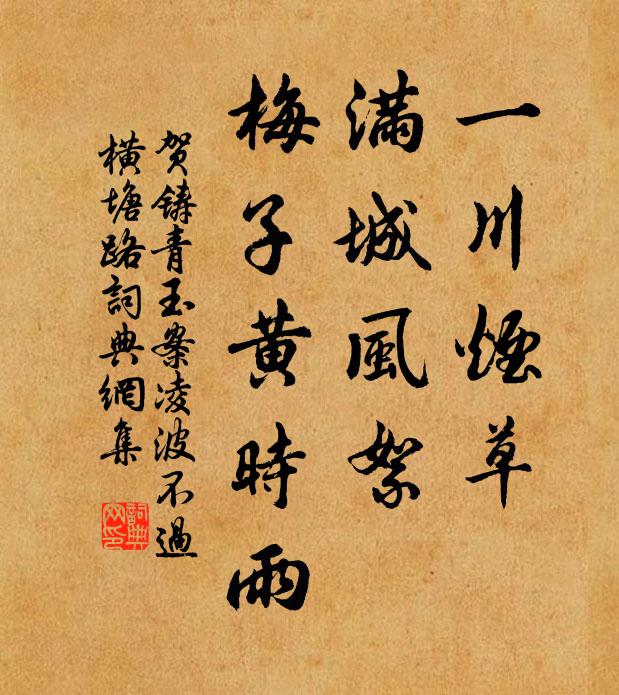 一川煙草
滿城風絮
梅子黄時雨
贺鑄青玉案凌波不過
橫塘路詞典網集
詞典
网印